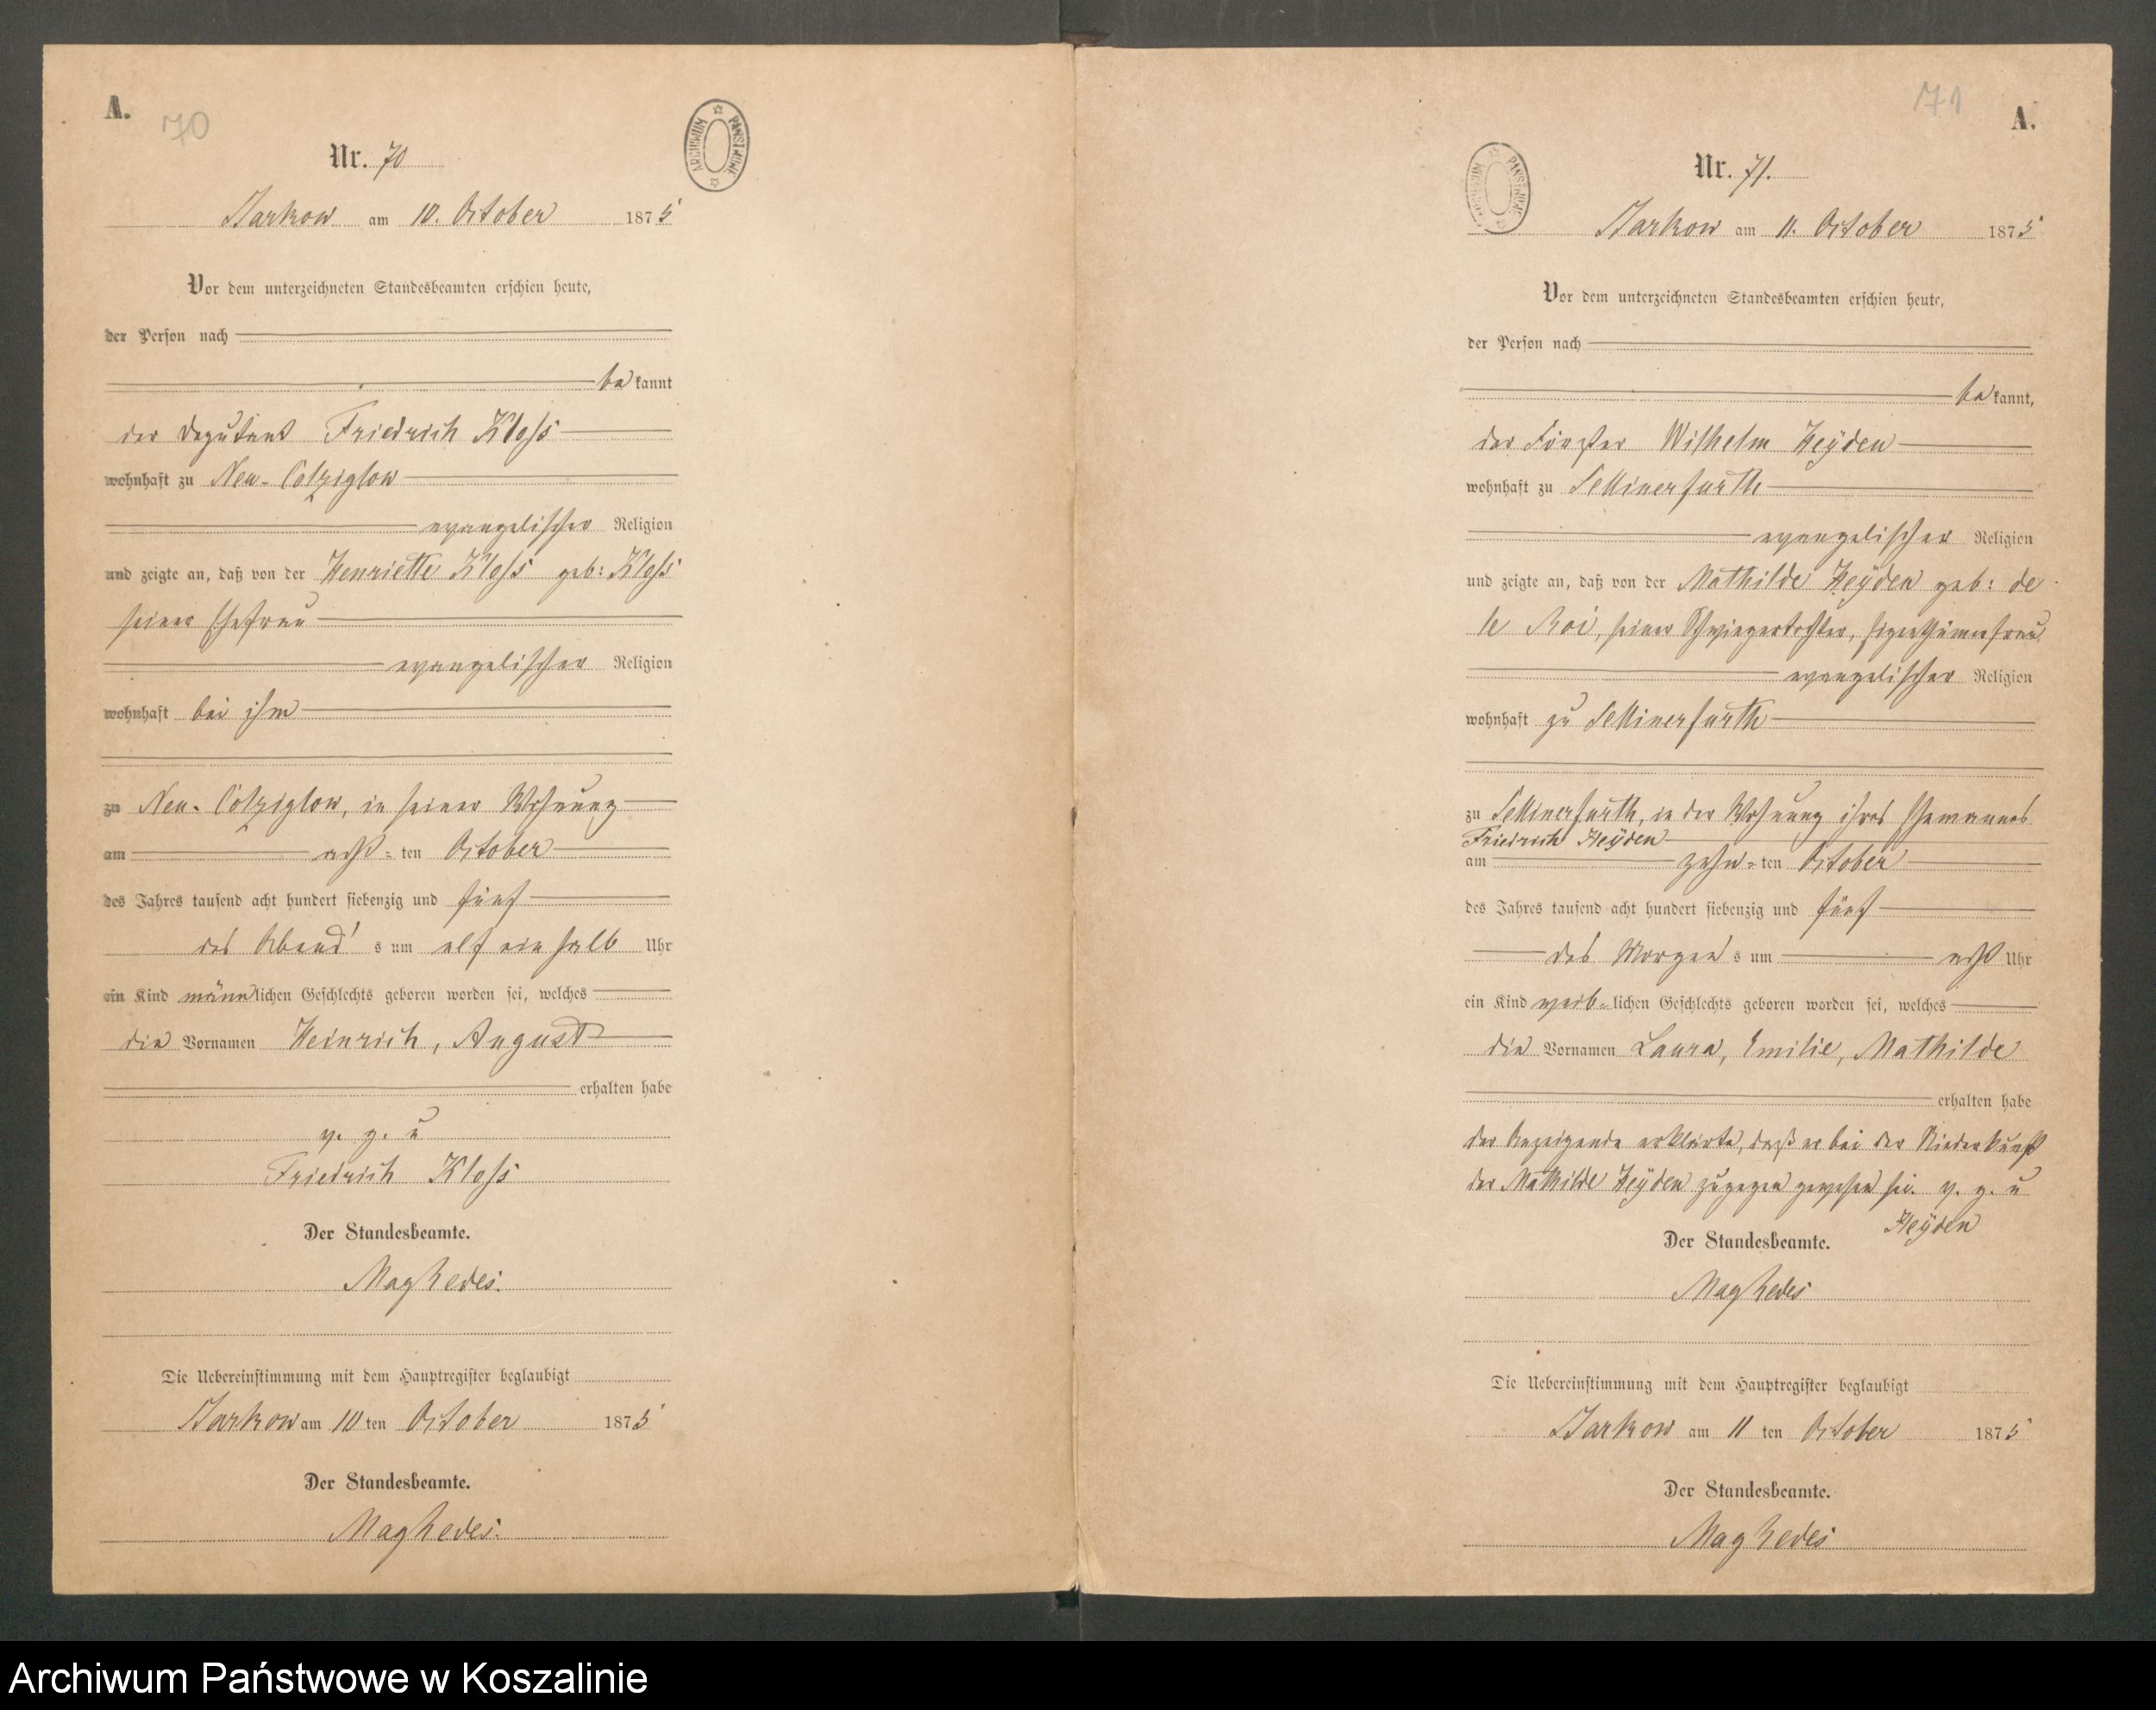 A.
70
Nr. 70
ARCHIWUM PAŃSTWOWE
am 10. October 1875
Vor dem unterzeichneten Standesbeamten erschien heute,
der Person nach
bekannt
der Deputant Friedrich Kloss
wohnhaft zu Neu-Colziglow
evangelischer Religion
und zeigte an, daß von der Henriette Kloss geb: Kloss
seiner Ehefrau
evangelischer Religion
wohnhaft bei ihm
zu Neu-Colziglow, in seiner Wohnung
am acht-ten October
des Jahres tausend acht hundert siebenzig und fünf
des Abend's um elf ein halb Uhr
ein Kind männlichen Geschlechts geboren worden sei, welches
die Vornamen Heinrich, August
erhalten habe
v. g. u
Friedrich Kloss
Der Standesbeamte.
Die Uebereinstimmung mit dem Hauptregister beglaubigt
am 10 ten October 1875
Der Standesbeamte.
71
A.
Nr. 71.
ARCHIWUM PAŃSTWOWE
am 11. October 1875
Vor dem unterzeichneten Standesbeamten erschien heute,
der Person nach
bekannt,
der Förster Wilhelm Heyden
wohnhaft zu
evangelischer Religion
und zeigte an, daß von der Mathilde Heyden geb: de
le Roi, seiner Schwiegertochter, Eigenthümerfrau
evangelischer Religion
wohnhaft zu
zu in der Wohnung ihres Ehemannes
Friedrich Heyden
am zehn-ten October
des Jahres tausend acht hundert siebenzig und fünf
des Morgens um acht Uhr
ein Kind weib-lichen Geschlechts geboren worden sei, welches
die Vornamen Laura, Emilie, Mathilde
erhalten habe
der Anzeigende erklärte, daß er bei der Niederkunft
der Mathilde Heyden zugegen gewesen sei. v. g. u
Heyden
Der Standesbeamte.
Die Uebereinstimmung mit dem Hauptregister beglaubigt
am 11 ten October 1875
Der Standesbeamte.
Archiwum Państwowe w Koszalinie